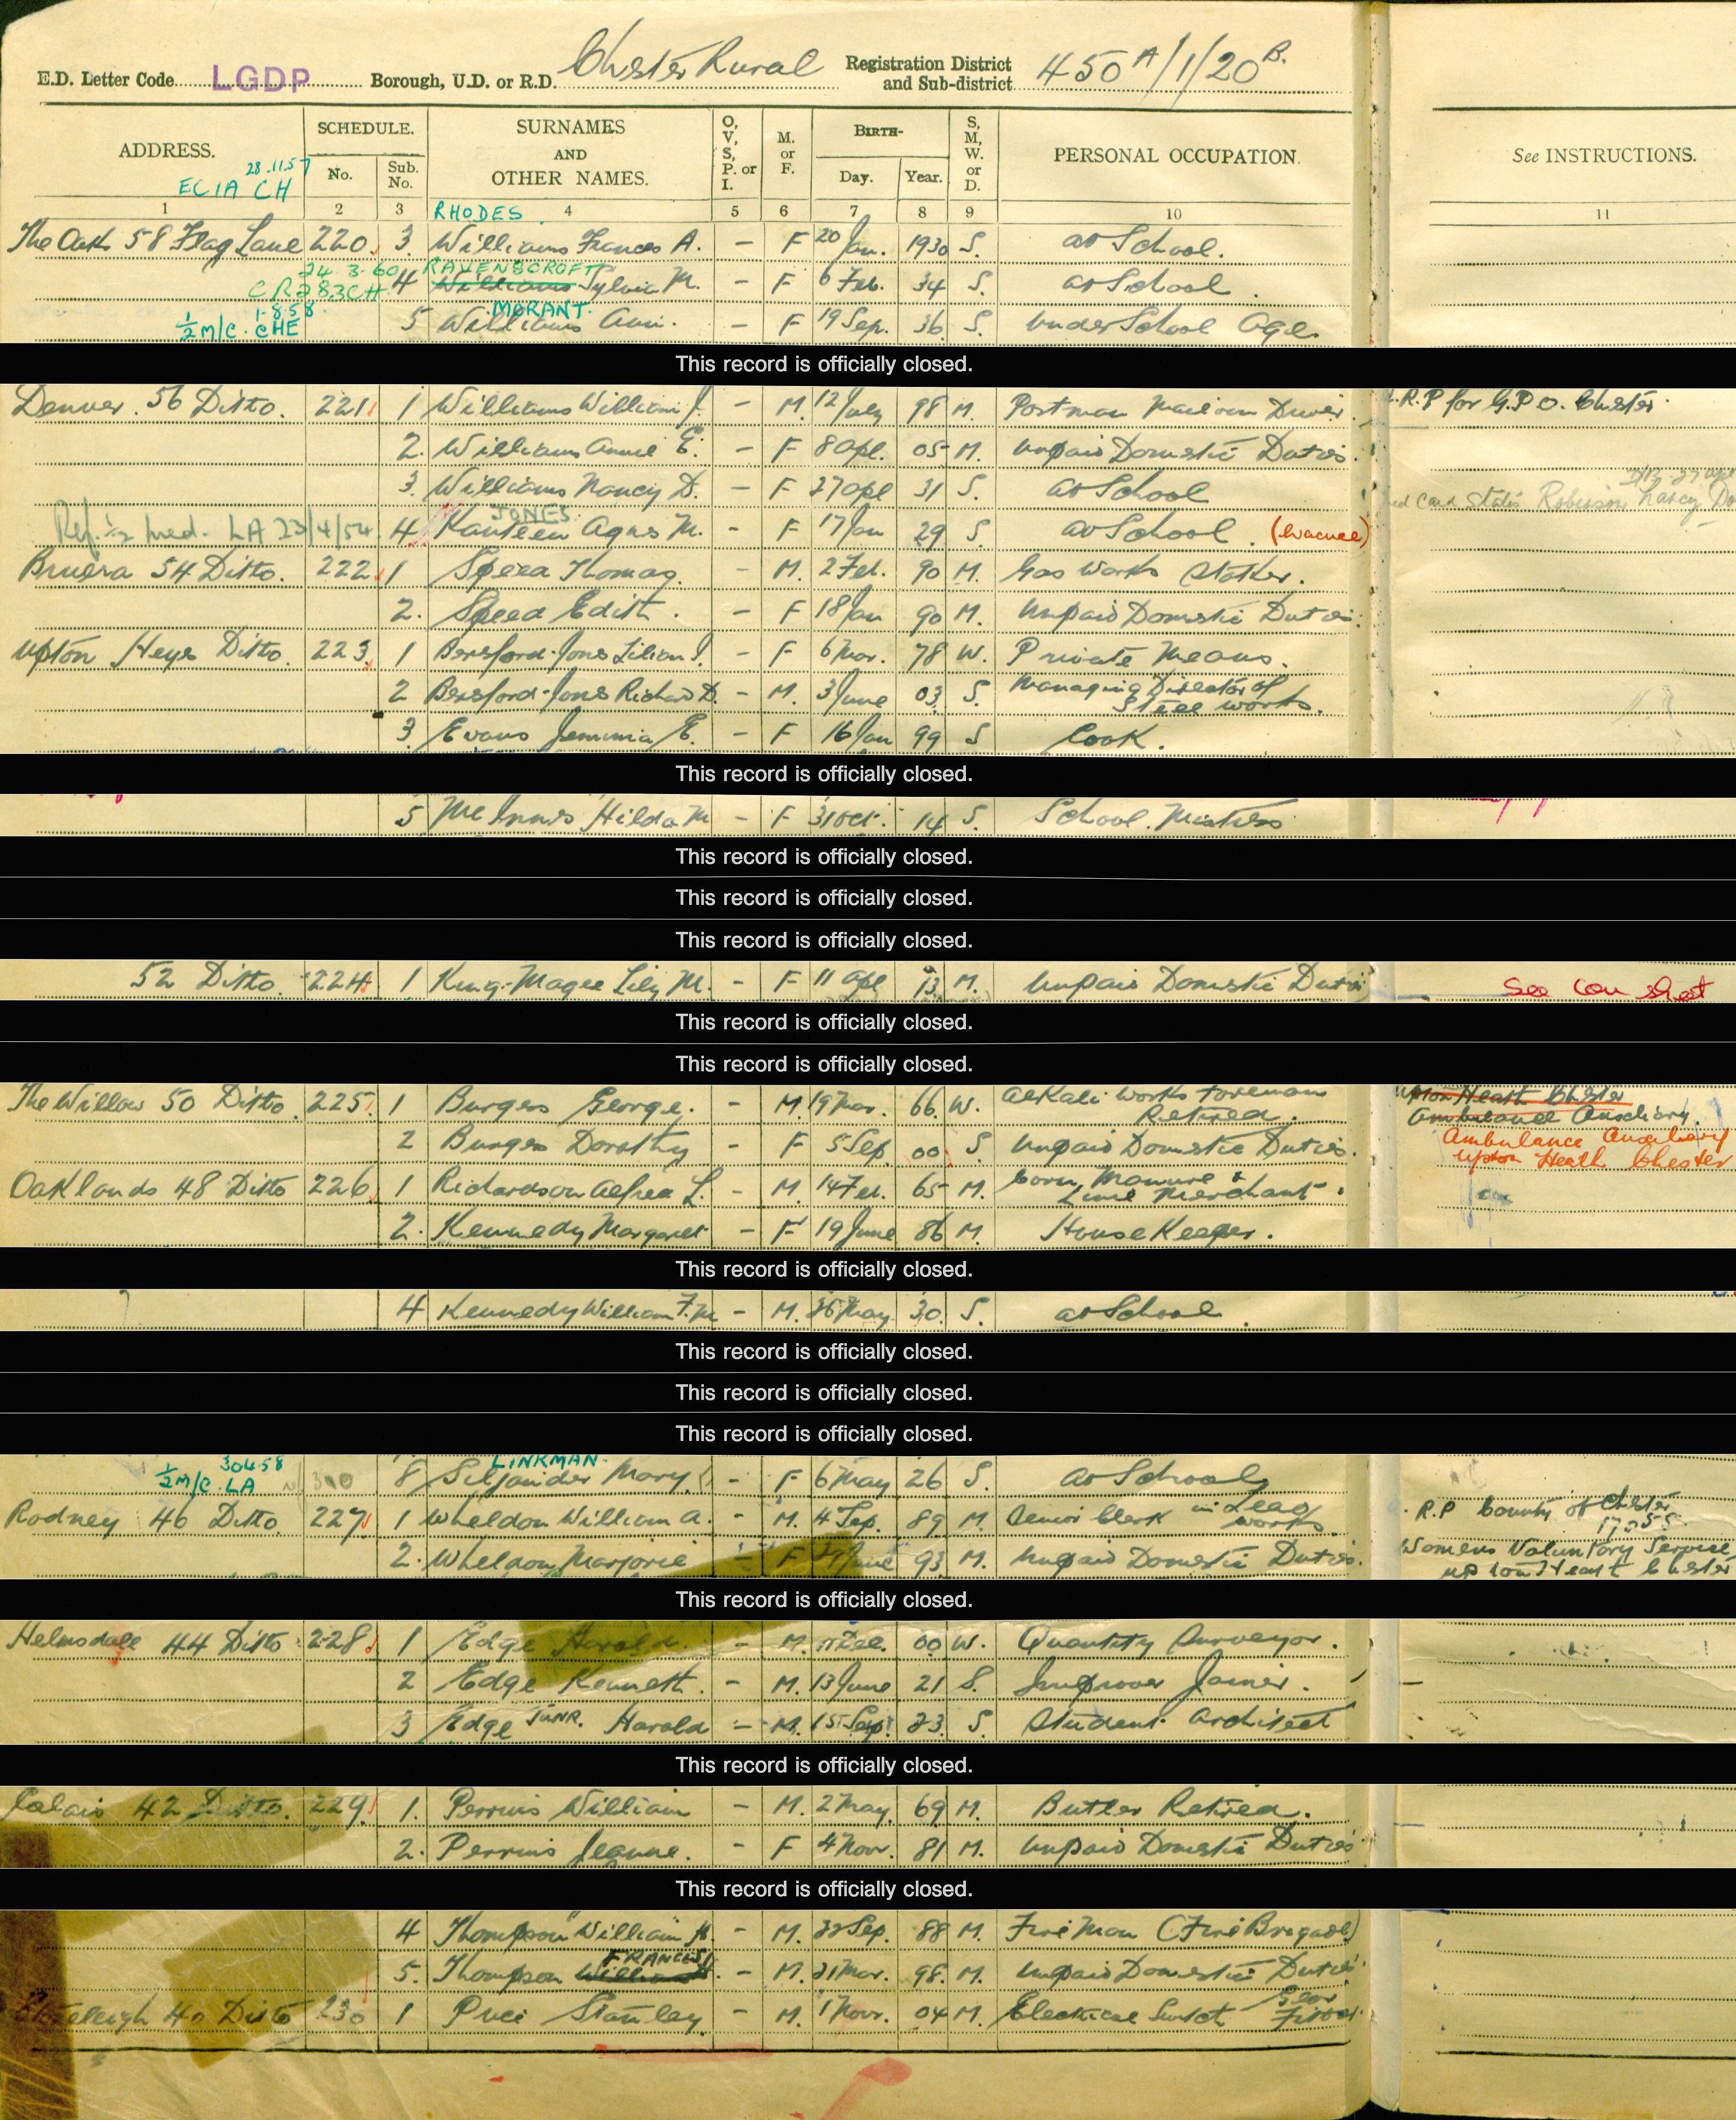 E.D. Letter Code LGDP Borough, U.D. or R.D. Chester Rural Registration District and Sub-district 450A/1/20B.
ADDRESS. SCHEDULE. No. Sub. No. SURNAMES AND OTHER NAMES. O, V, S, P. or I. M. or F. BIRTH- Day. Year. S, M, W. or D. PERSONAL OCCUPATION. See INSTRUCTIONS.
28.11.57
ECIA CH
1 2 3 4 5 6 7 8 9 10 11
RHODES
The Oak 58 Flag Lane 220 3 Williams Frances A. - F 20 Jan. 1930 S. at School.
24.3.60 RAVENSCROFT
CR283CH 4 Williams Sylvia M. - F 6 Feb. 34 S. at School.
1.8.58 MORANT.
½ M/C. CHE 5 Williams Ann. - F 19 Sep. 36 S. Under School Age.
This record is officially closed.
Denver. 56 Ditto. 221 1 Williams William J. - M. 12 July 98 M. Postman Mail van Driver. A.R.P for G.P.O. Chester.
2. Williams Annie E. - F 8 Apl. 05 M. Unpaid Domestic Duties.
3. Williams Nancy D. - F 27 Apl 31 S. at School
Card States Robinson Nancy
JONES
Ref. ½ med. LA 23/4/54 4 Agnes M. - F 17 Jan 29 S. at School. (Evacuee)
Bruera 54 Ditto. 222 1 Speed Thomas. - M. 2 Feb. 90 M. Gas Works Stoker.
2. Speed Edith. - F 18 Jan 90 M. Unpaid Domestic Duties.
Upton Heys Ditto. 223 1 Beresford-Jones Lilian J. - F 6 Mar. 78 W. Private Means.
2 Beresford-Jones Richard D. - M. 3 June 03 S. Managing Director of Steel Works.
3 Evans Jemima E. - F 16 Jan 99 S Cook.
This record is officially closed.
5 McInnes Hilda M - F 31 Oct. 14 S. School. Mistress
This record is officially closed.
This record is officially closed.
This record is officially closed.
52 Ditto. 224 1 King-Magee Lily M. - F 11 Apl 13 M. Unpaid Domestic Duties See con sheet
This record is officially closed.
This record is officially closed.
The Willow 50 Ditto. 225 1 Burgess George. - M. 19 Mar. 66 W. Alkali Works Foreman Retired. Upton Heath Chester
Ambulance Auxiliary
2 Burgess Dorothy - F 5 Sep 00 S. Unpaid Domestic Duties. Ambulance Auxiliary
Upton Heath Chester
Oaklands 48 Ditto 226 1 Richardson Alfred L. - M. 14 Feb. 65 M. Corn, Manure & Lime Merchant.
2. Kennedy Margaret - F 19 June 86 M. House Keeper.
This record is officially closed.
4 Kennedy William F.M - M. 26 May 30. S. at School.
This record is officially closed.
This record is officially closed.
This record is officially closed.
30.4.58 LINKMAN.
½ M/C. LA 8 Siljander Mary - F 6 May 26 S. at School
Rodney 46 Ditto. 227 1 Wheldon William A. - M. 4 Sep. 89 M. Senior Clerk in Lead works. A.R.P County of Chester
2. Wheldon Marjorie - F June 93 M. Unpaid Domestic Duties. Womens Voluntary Service
Upton Heath Chester
This record is officially closed.
Helmsdale 44 Ditto. 228 1 Edge Harold. - M. Dec. 00 W. Quantity Surveyor.
2 Edge Kenneth. - M. 13 June 21 S. Improver Joiner.
3 Edge JUNR. Harold - M. 15 Sep. 23. S. Student Architect
This record is officially closed.
Calais 42 Ditto. 229 1. Perrins William - M. 2 May 69 M. Butler Retired.
2. Perrins Jeanne. - F 4 Nov. 81 M. Unpaid Domestic Duties
This record is officially closed.
4 Thompson William H. - M. Sep. 88 M. Fire Man (Fire Brigade)
FRANCES
5. Thompson - M. 31 Mar. 98. M. Unpaid Domestic Duties.
40 Ditto 230 1 Price Stanley. - M. 1 Nov. 04 M. Electrical Switch Gear Fitter.